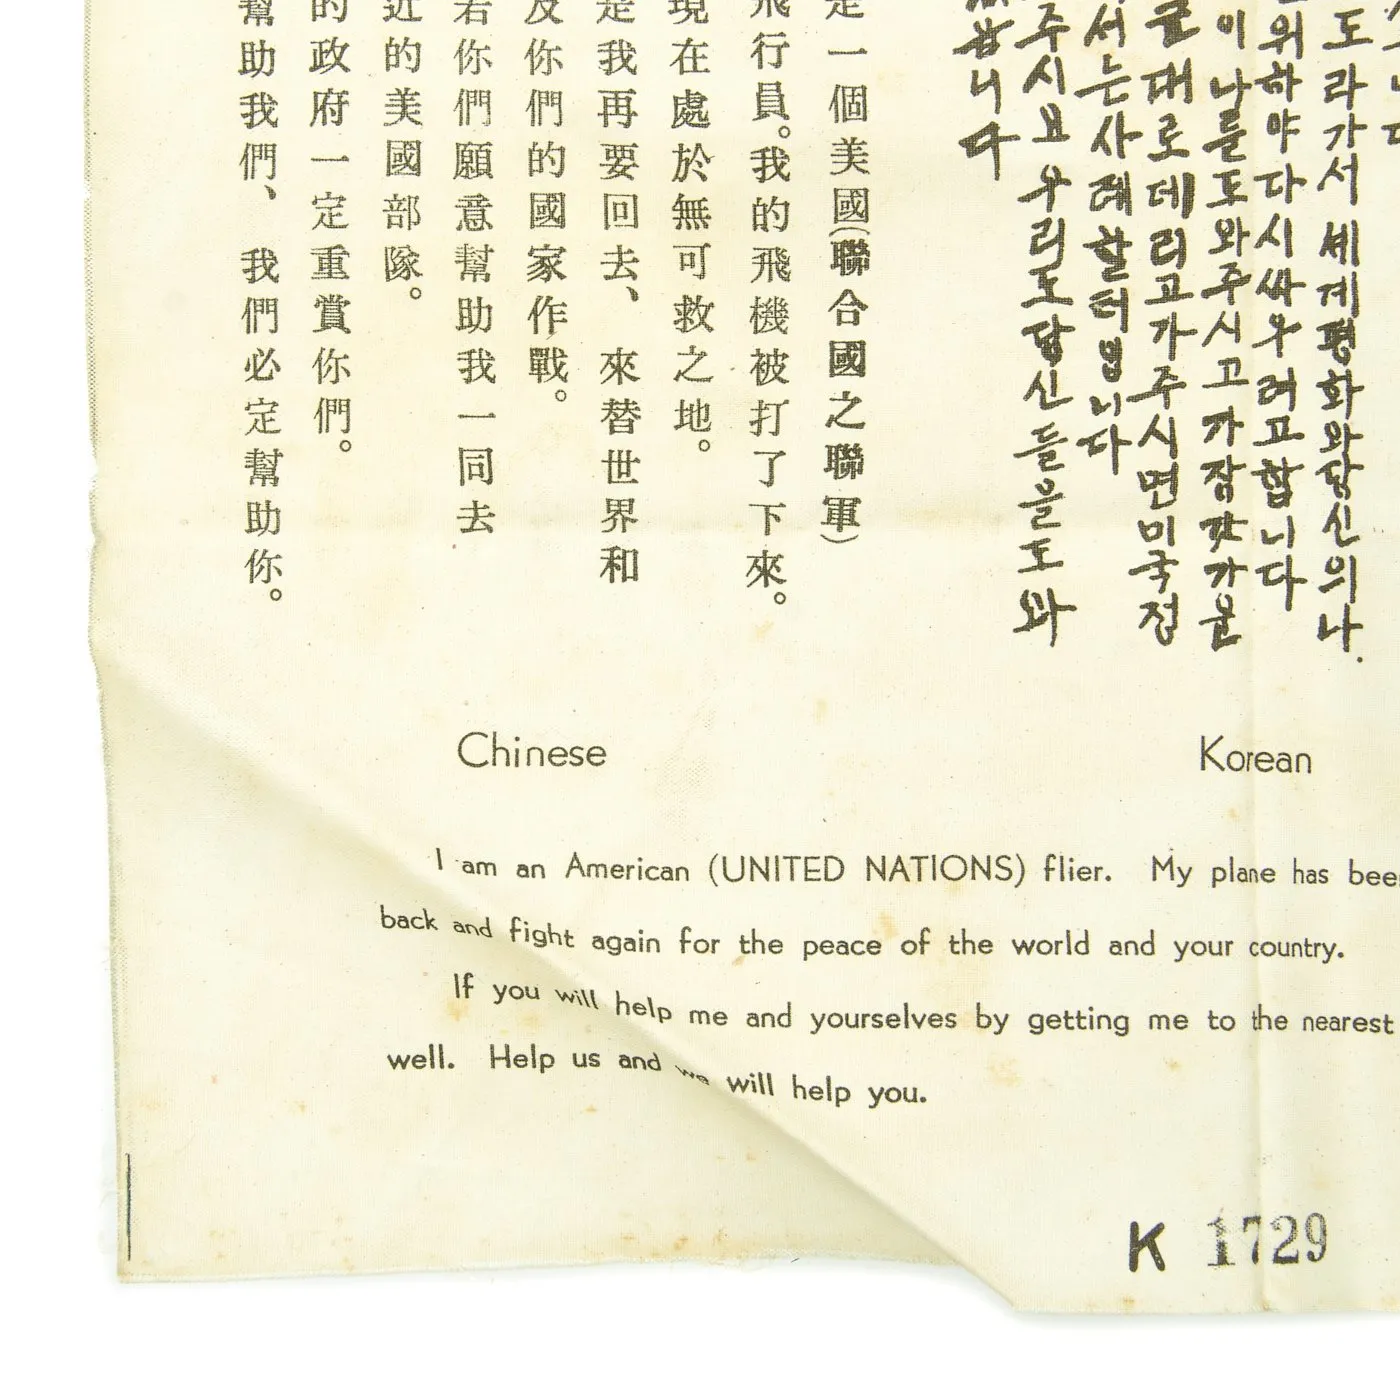 도라가서 세계평화와당신의나.
위하야다시싸우려고합니다
이나를도와주시고가장갓가운
대로데리고가주시면미국정
서는사례할터입니다
주시요우리도당신들을도와
니다
是一個美國(聯合國之聯軍)
飛行員。我的飛機被打了下來。
現在處於無可救之地。
是我再要回去、來替世界和
及你們的國家作戰。
若你們願意幫助我一同去
近的美國部隊。
的政府一定重賞你們。
幫助我們、我們必定幫助你。
Chinese
Korean
I am an American (UNITED NATIONS) flier. My plane has bee
back and fight again for the peace of the world and your country.
If you will help me and yourselves by getting me to the nearest
well. Help us and we will help you.
K 1729